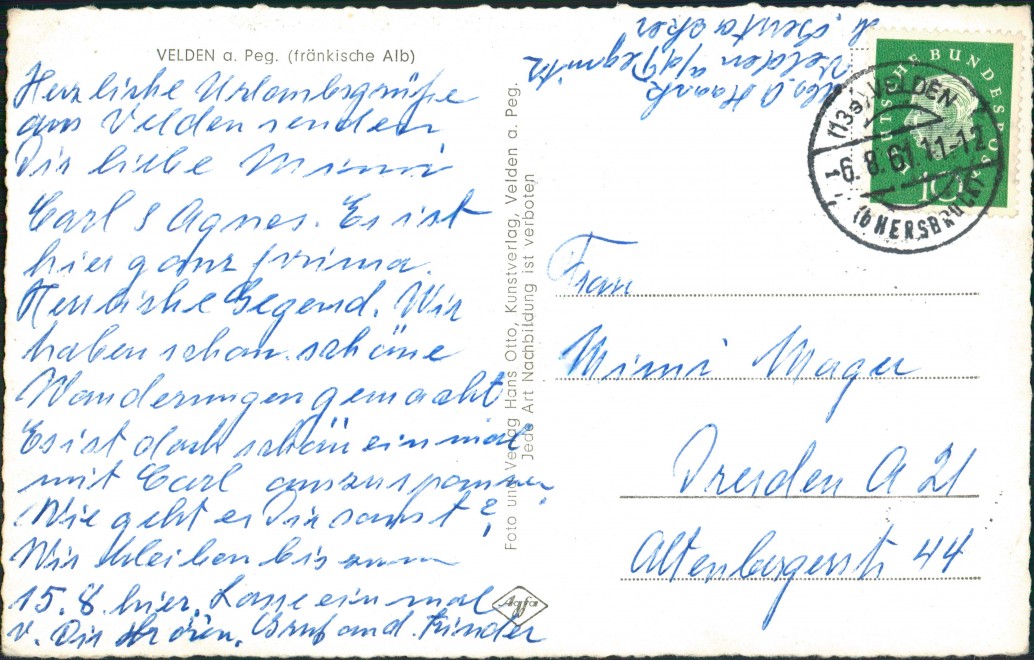 VELDEN a. Peg. (fränkische Alb)
Herzliche Urlaubsgrüße
aus Velden senden
Dir liebe Mimi
Carl & Agnes. Es ist
hier ganz prima.
Herrliche Gegend. Wir
haben schon schöne
Wanderungen gemacht
Es ist doch schön einmal
mit Carl auszuspannen
Wie geht es Dir sonst?
Wir bleiben bis zum
15. 8. hier. Lasse einmal
v. Dir hören. Gruß and. Kinder
Foto und Verlag Hans Otto, Kunstverlag, Velden a. Peg.
Jede Art Nachbildung ist verboten
Agfa
Velden a/d Pegnitz
DEUTSCHE BUNDESPOST
10
(13a) VELDEN
6.8.61.11-12
üb HERSBRUCK
Frau
Mimi Mager
Dresden A 21
Altenbergerstr 44